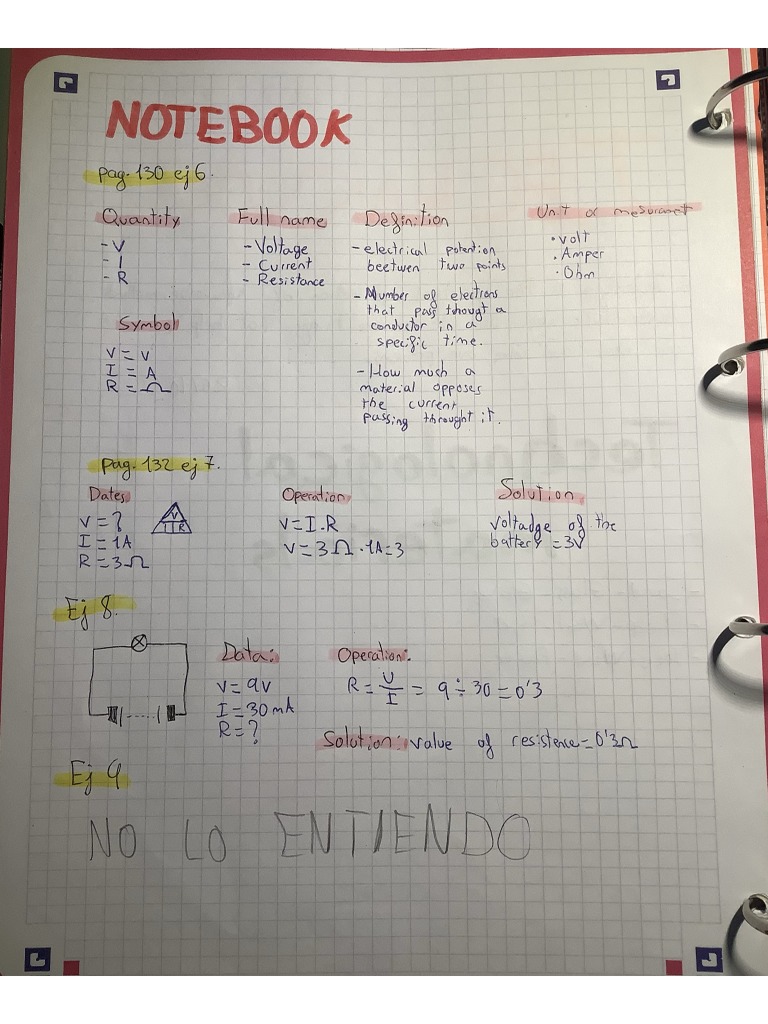 NOTEBOOK
pag. 130 ej 6.
Quantity Full name Definition Unit of mesurmet
- V
- I
- R
- Voltage
- Current
- Resistance
- electrical potention
beetwen two points
- Number of electrons
that pass thougt a
conductor in a
specific time.
- How much a
material opposes
the current
passing throught it.
• volt
• Amper
• Ohm
Symbol
V = V
I = A
R = Ω
pag. 132 ej 7.
Dates
V = ?
I = 1A
R = 3Ω
V
I R
Operation
V = I · R
V = 3Ω · 1A = 3
Solution
Voltadge of the
battery = 3V
Ej 8.
Data:
V = 9V
I = 30 mA
R = ?
Operation:
R = V/I = 9 ÷ 30 = 0'3
Solution: value of resistence = 0'3Ω
Ej 9
NO LO ENTIENDO